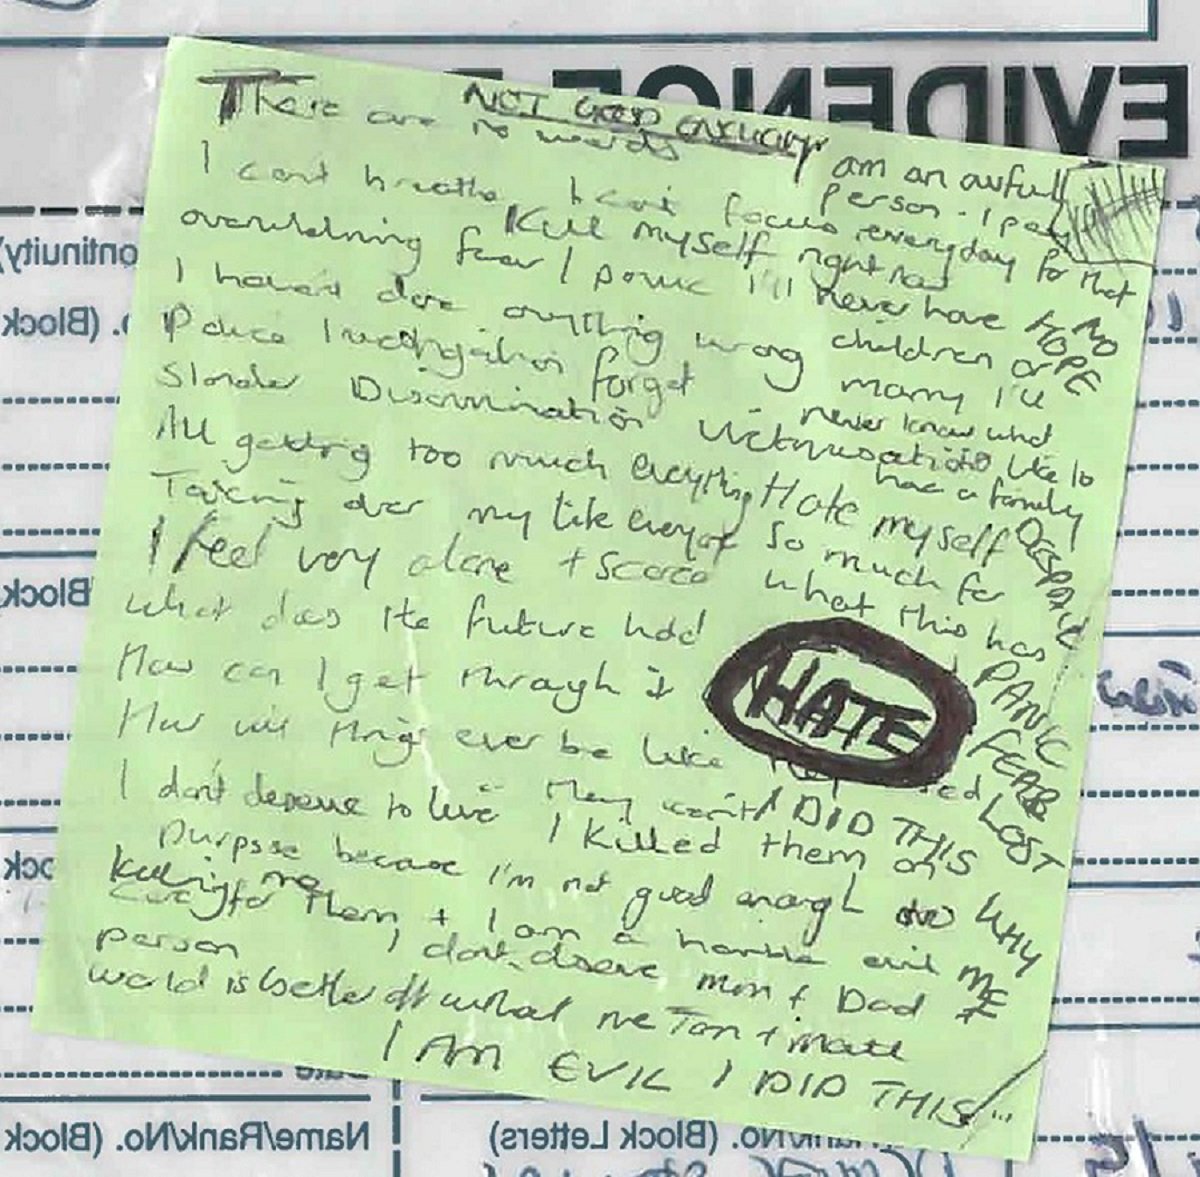 EVIDENCE
NOT GOOD ENOUGH
There are no words
I am an awful person. I pay
I cant breathe I can't focus everyday for that
Kill myself right now
overwhelming fear / panic I'll never have NO HOPE
I haven't done anything wrong children or
Police Investigation forget marry I'll
never know what
Slander Discrimination Victimisation like to
have a family
All getting too much everything Hate myself DESPAIR
Taking over my life everyday so much for
I feel very alone + scared what this has
What does the future hold PANIC
HATE
How can I get through it FEAR
How will things ever be like they used LOST
I don't deserve to live They won't I DID THIS
I killed them on
purpose because I'm not good enough to WHY
killing me
care for them + I am a horrible evil ME
person I don't deserve Mum + Dad
world is better off without me Tom + Matt
I AM EVIL I DID THIS...
Continuity)
No. (Block
(Block
Date
Name/Rank/No. (Block
Rank/No. (Block Letters)